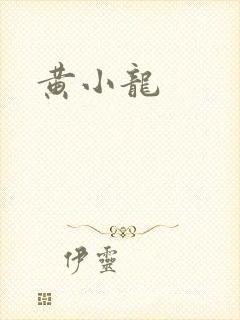 黄小龍
伊靈